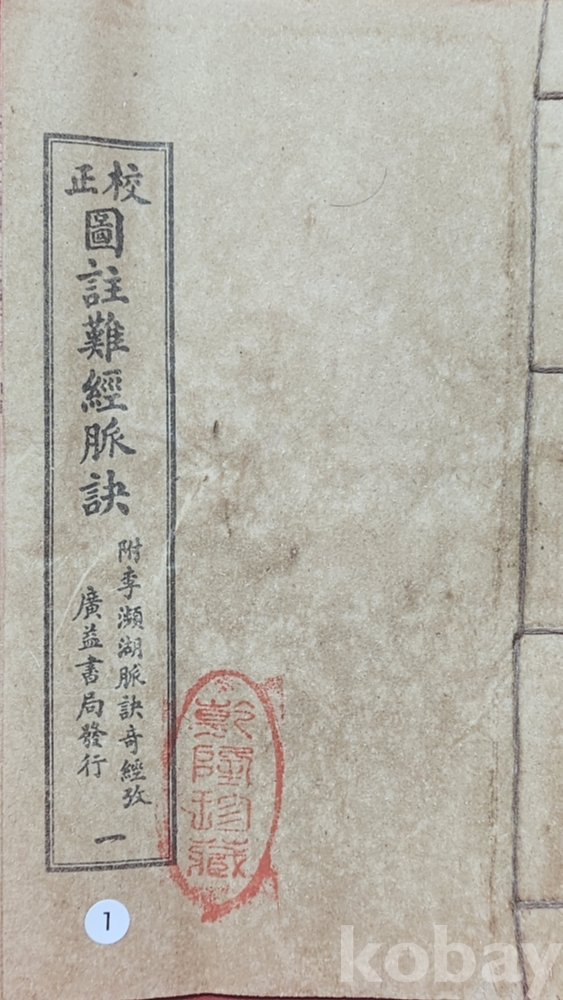 校正
圖註難經脈訣
附李瀕湖脈訣奇經攷
廣益書局發行
一
乾隆珍藏
1
kobay